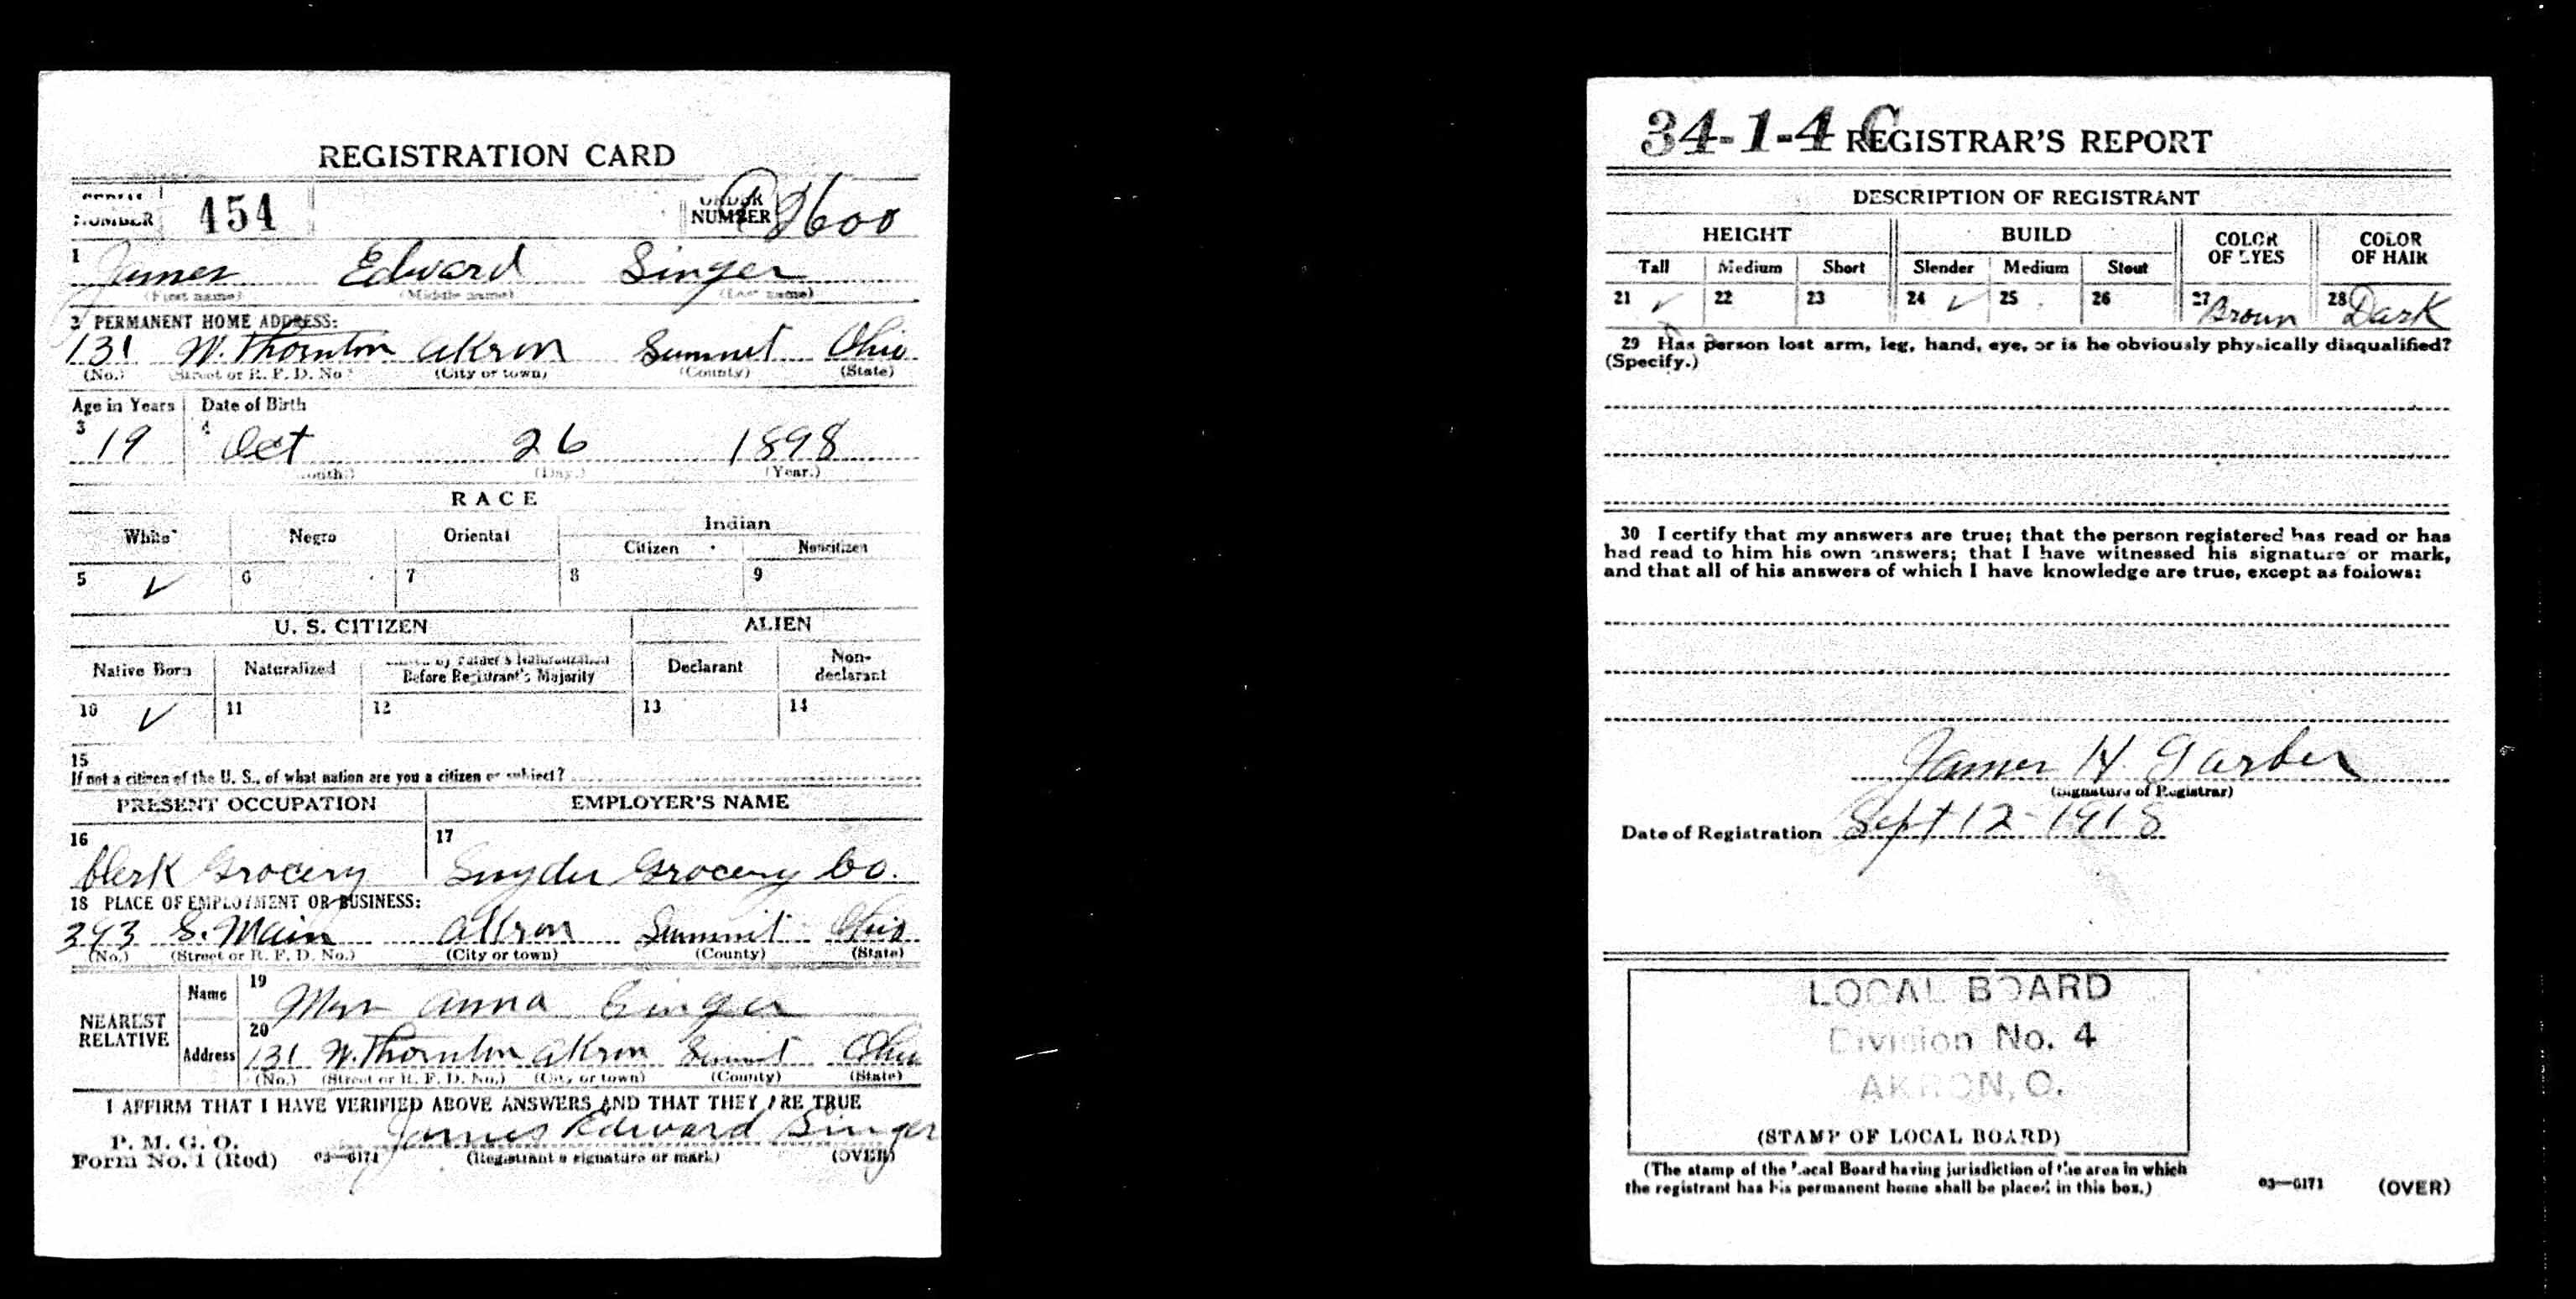 REGISTRATION CARD
SERIAL NUMBER 454 ORDER NUMBER 2600
1 James Edward Singer
(First name) (Middle name) (Last name)
2 PERMANENT HOME ADDRESS:
131 W. Thornton Akron Summit Ohio
(No.) (Street or R. F. D. No.) (City or town) (County) (State)
Age in Years Date of Birth
3 19 4 Oct 26 1898
(Month.) (Day.) (Year.)
RACE
White Negro Oriental Indian
Citizen Noncitizen
5 ✓ 6 7 8 9
U. S. CITIZEN ALIEN
Native Born Naturalized by Father's Naturalization Before Registrant's Majority Declarant Non-declarant
10 ✓ 11 12 13 14
15
If not a citizen of the U. S., of what nation are you a citizen or subject?
PRESENT OCCUPATION EMPLOYER'S NAME
16 17
Clerk Grocery Snyder Grocery Co.
18 PLACE OF EMPLOYMENT OR BUSINESS:
393 S. Main Akron Summit Ohio
(No.) (Street or R. F. D. No.) (City or town) (County) (State)
NEAREST RELATIVE
Name 19 Mrs Anna Singer
Address 20 131 W. Thornton Akron Summit Ohio
(No.) (Street or R. F. D. No.) (City or town) (County) (State)
I AFFIRM THAT I HAVE VERIFIED ABOVE ANSWERS AND THAT THEY ARE TRUE
P. M. G. O.
Form No. 1 (Red) 03—6171 James Edward Singer
(Registrant's signature or mark) (OVER)
34-1-4 C REGISTRAR'S REPORT
DESCRIPTION OF REGISTRANT
HEIGHT BUILD COLOR OF EYES COLOR OF HAIR
Tall Medium Short Slender Medium Stout
21 ✓ 22 23 24 ✓ 25 26 27 Brown 28 Dark
29 Has person lost arm, leg, hand, eye, or is he obviously physically disqualified?
(Specify.)
30 I certify that my answers are true; that the person registered has read or has
had read to him his own answers; that I have witnessed his signature or mark,
and that all of his answers of which I have knowledge are true, except as follows:
James H Garber
(Signature of Registrar)
Date of Registration Sept 12 - 1918
LOCAL BOARD
Division No. 4
AKRON, O.
(STAMP OF LOCAL BOARD)
(The stamp of the Local Board having jurisdiction of the area in which
the registrant has his permanent home shall be placed in this box.)
03—6171 (OVER)